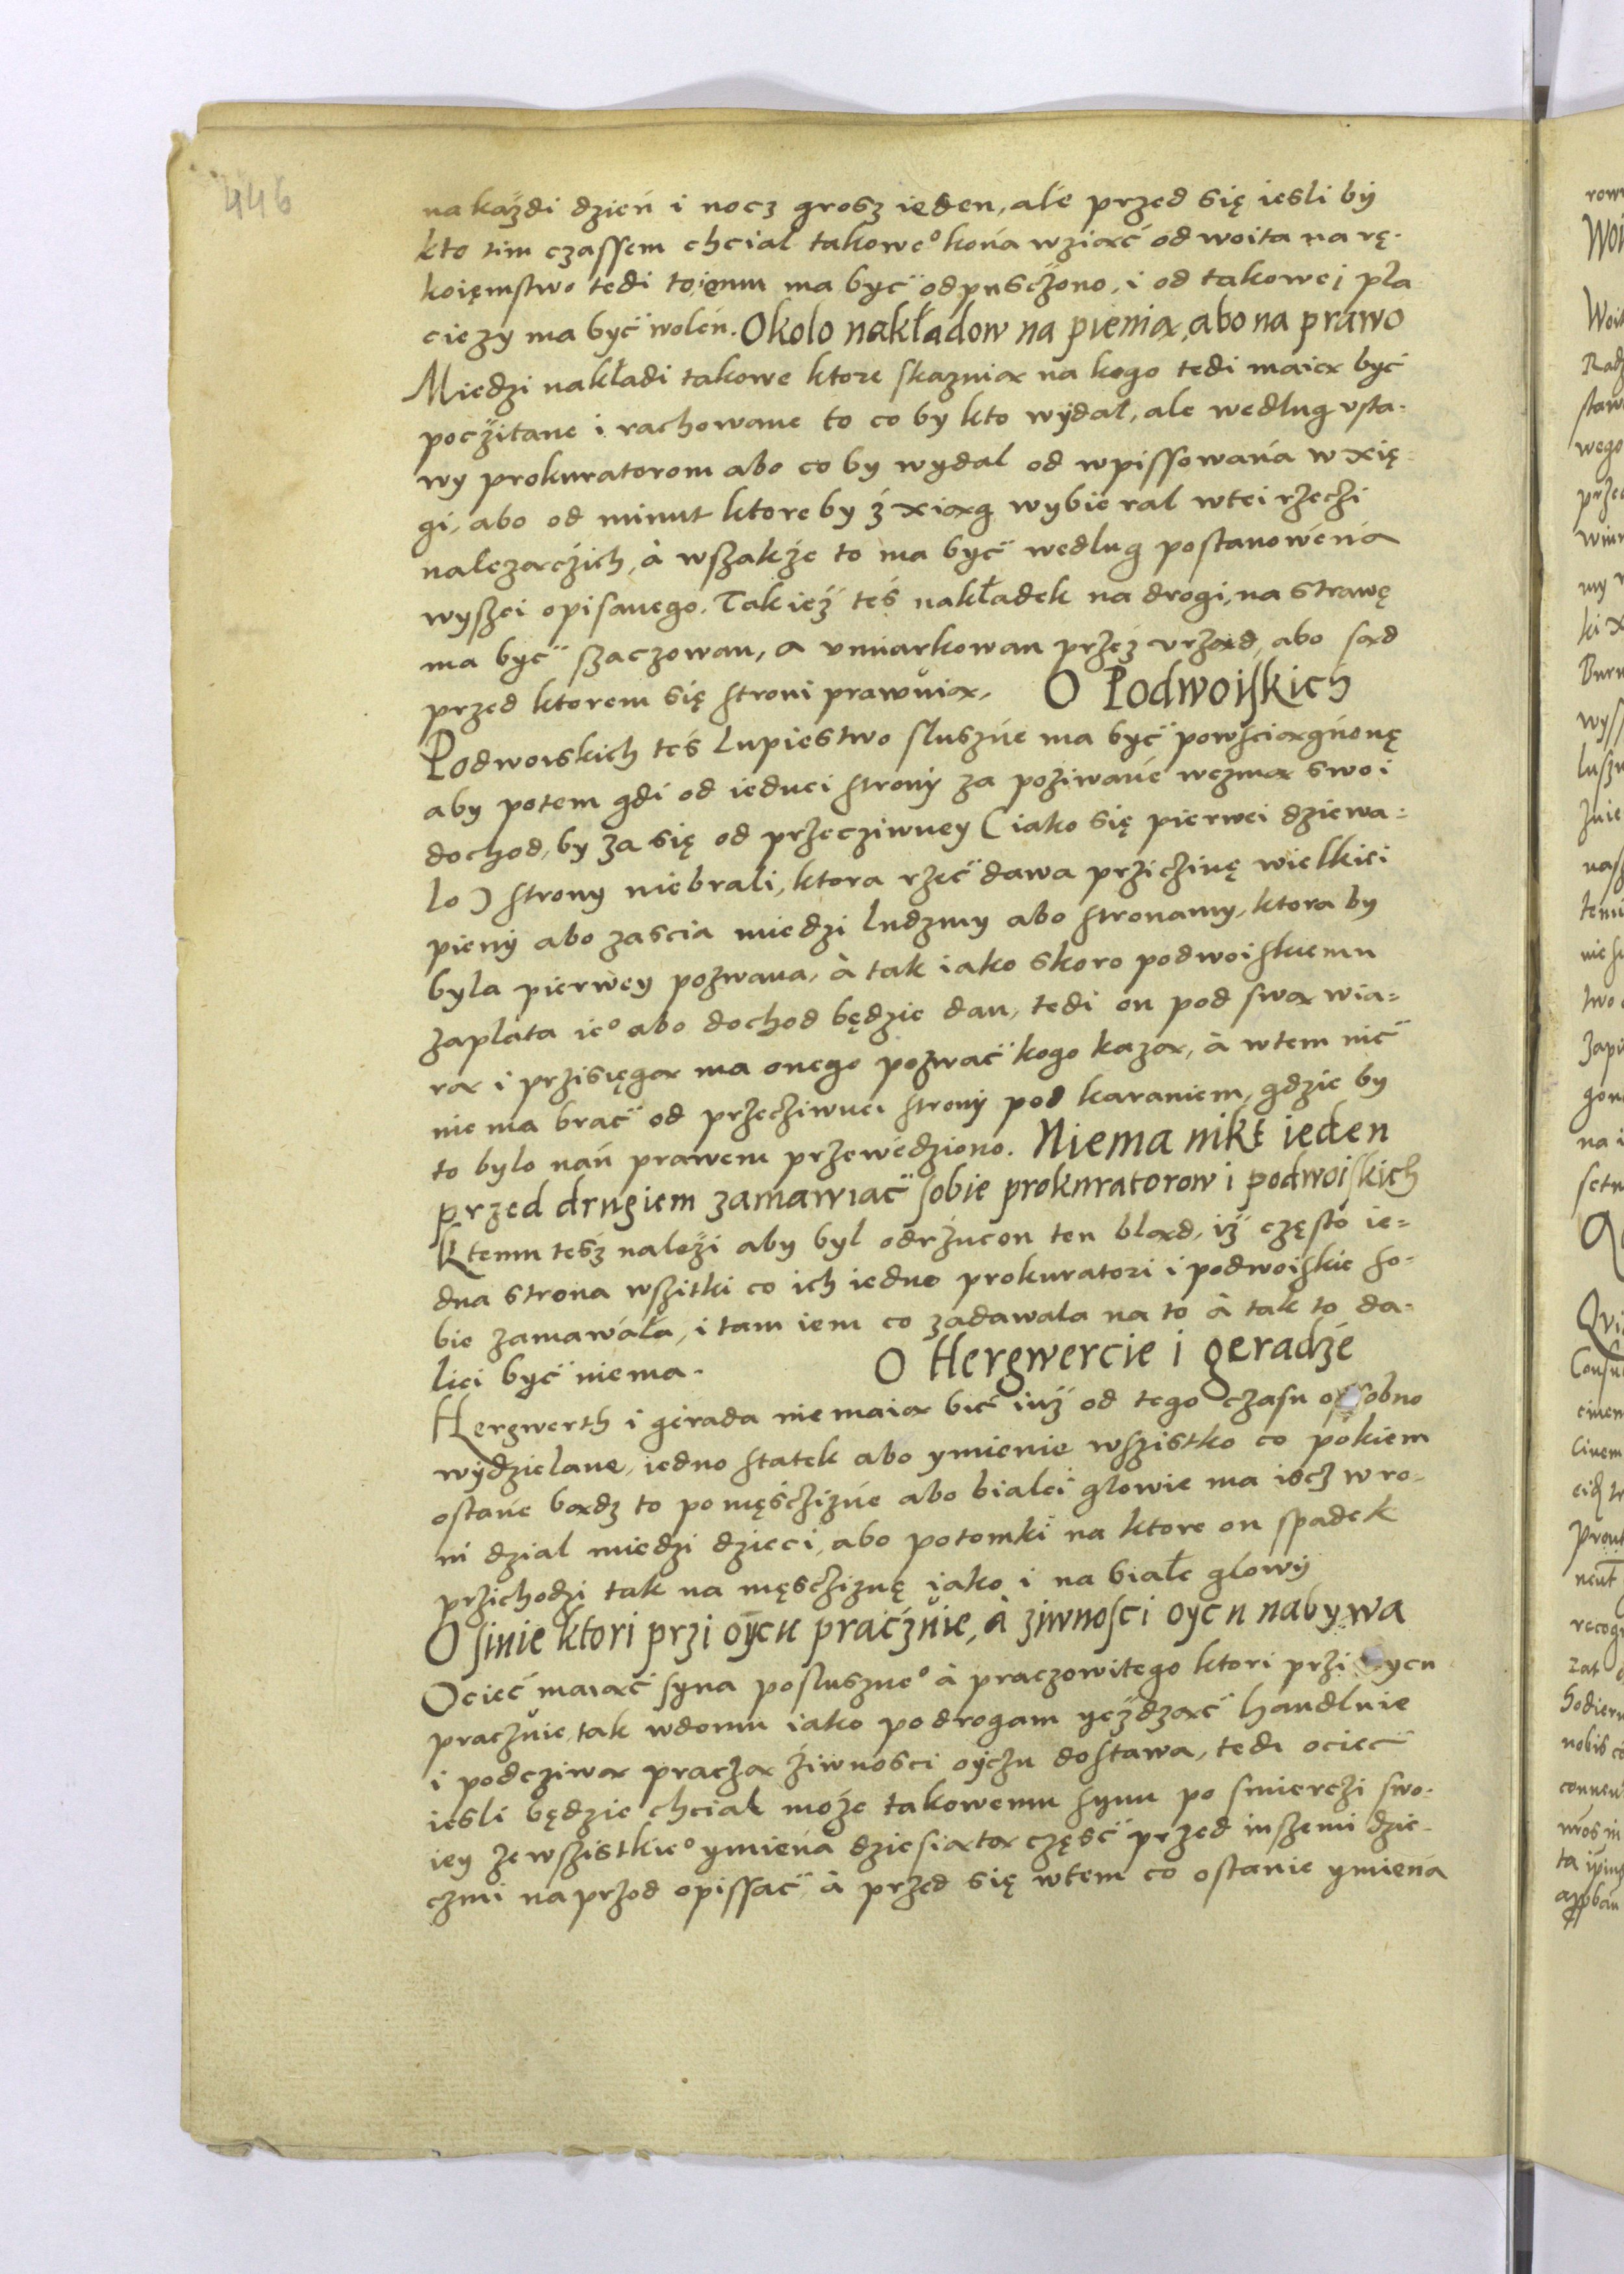 446
na każdi dzień i nocz grosz ieden, ale przed się iesli by
kto tim czassem chcial takoweº końa wziąć od woita na rę-
koięmstwo tedi to iemu ma być odpusczono, i od takowej pła
ciezy ma być woleń. Okolo nakładow na pienią, abo na prawo
Miedzi nakładi takowe ktore skazuią na kogo tedi maią być
poczitane i rachowane to co by kto wydal, ale wedlug vsta-
wy prokuratorom abo co by wydal od wpissowańa w xię-
gi, abo od minut ktore by z xiąg wybieral w tei rzeczi
należączich, à wszakże to ma być wedlug postanowéńa
wyszei opisanego. Takież też nakładek na drogi, na strawę
ma być szaczowan, a vmiarkowan przez vrząd, abo sąd
przed ktorem się stroni prawuią. O Podwoiskich
Podwoiskich teś lupiestwo sluszńe ma być powsciągńonę
aby potem gdi od iednei strony za poziwańe wezmą swoi
dochod, by za się od przecziwney (iako się pierwei dziewa-
lo) strony niebrali, ktora rzeć dawa przicziną wielkiei
pieny abo zascia miedzi ludzmy abo stronamy, ktora by
byla pierwey pozwana, à tak iako skoro podwoiskiemu
zaplata ieº abo dochod będzie dan, tedi on pod swą wia-
rą i przisięgą ma onego pozwać kogo każą, à w tem nić
nie ma brać od przecziwnei strony pod karaniem, gdzie by
to bylo nań prawem przewédziono. Niema nikt ieden
przed drugiem zamawiać sobie prokuratorow i podwoiskich
Ktemu tesz należi aby byl odrzucon ten bląd, iż często ie-
dna strona wszitki co ich iedno prokuratori i podwoiskie so-
bie zamawiala, i tam iem co zadawala na to à tak to da-
liei być niema. O Hergwercie i geradźe
Hergwerth i gerada nie maią bić iuż od tego czasu osobno
wydzielane, iedno statek abo ymienie wszistko co pokiem
ostańe bądz to po męsczizńe abo bialei glowie ma iscz w ro-
ni dzial miedzi dzieci, abo potomki na ktore on spadek
przichodzi tak na męscziznę iako i na białe glowy
O sinie ktori przi oycu praczuie, à ziwnosci oycu nabywa
Ociec maiąć syna poslusznеº à praczowitego ktori przi oycu
praczuie, tak w domu iako po drogam yeżdząć handluie
i podcziwą praczą żiwnosci oyczu dostawa, tedi ociec
iesli będzie chcial może takowemu synu po smierczi swo-
iey ze wszistkieº ymieńa dziesiątą część przed inszemi dzie-
czmi naprzod opissać, à przed się w tem co ostanie ymieńa